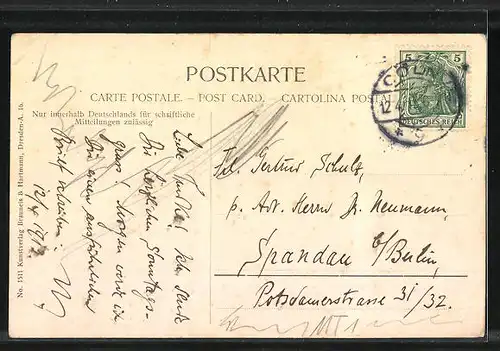 POSTKARTE
CARTE POSTALE. – POST CARD. – CARTOLINA
Nur innerhalb Deutschlands für schriftliche
Mitteilungen zulässig
No. 1511 Kunstverlag Brauneis & Hartmann, Dresden-A. 16.
5 5
CÖLN
12.4
* 9
DEUTSCHES REICH
Frl. Gertrud Schulz,
p. Adr. Herrn Neumann,
Spandau b/Berlin,
Potsdamerstrasse 31/32.
Ich sende
Dir herzlichen Sonntags-
gruss! Morgen werde ich
Dir einen ausführlichen
Brief schreiben.
12/4